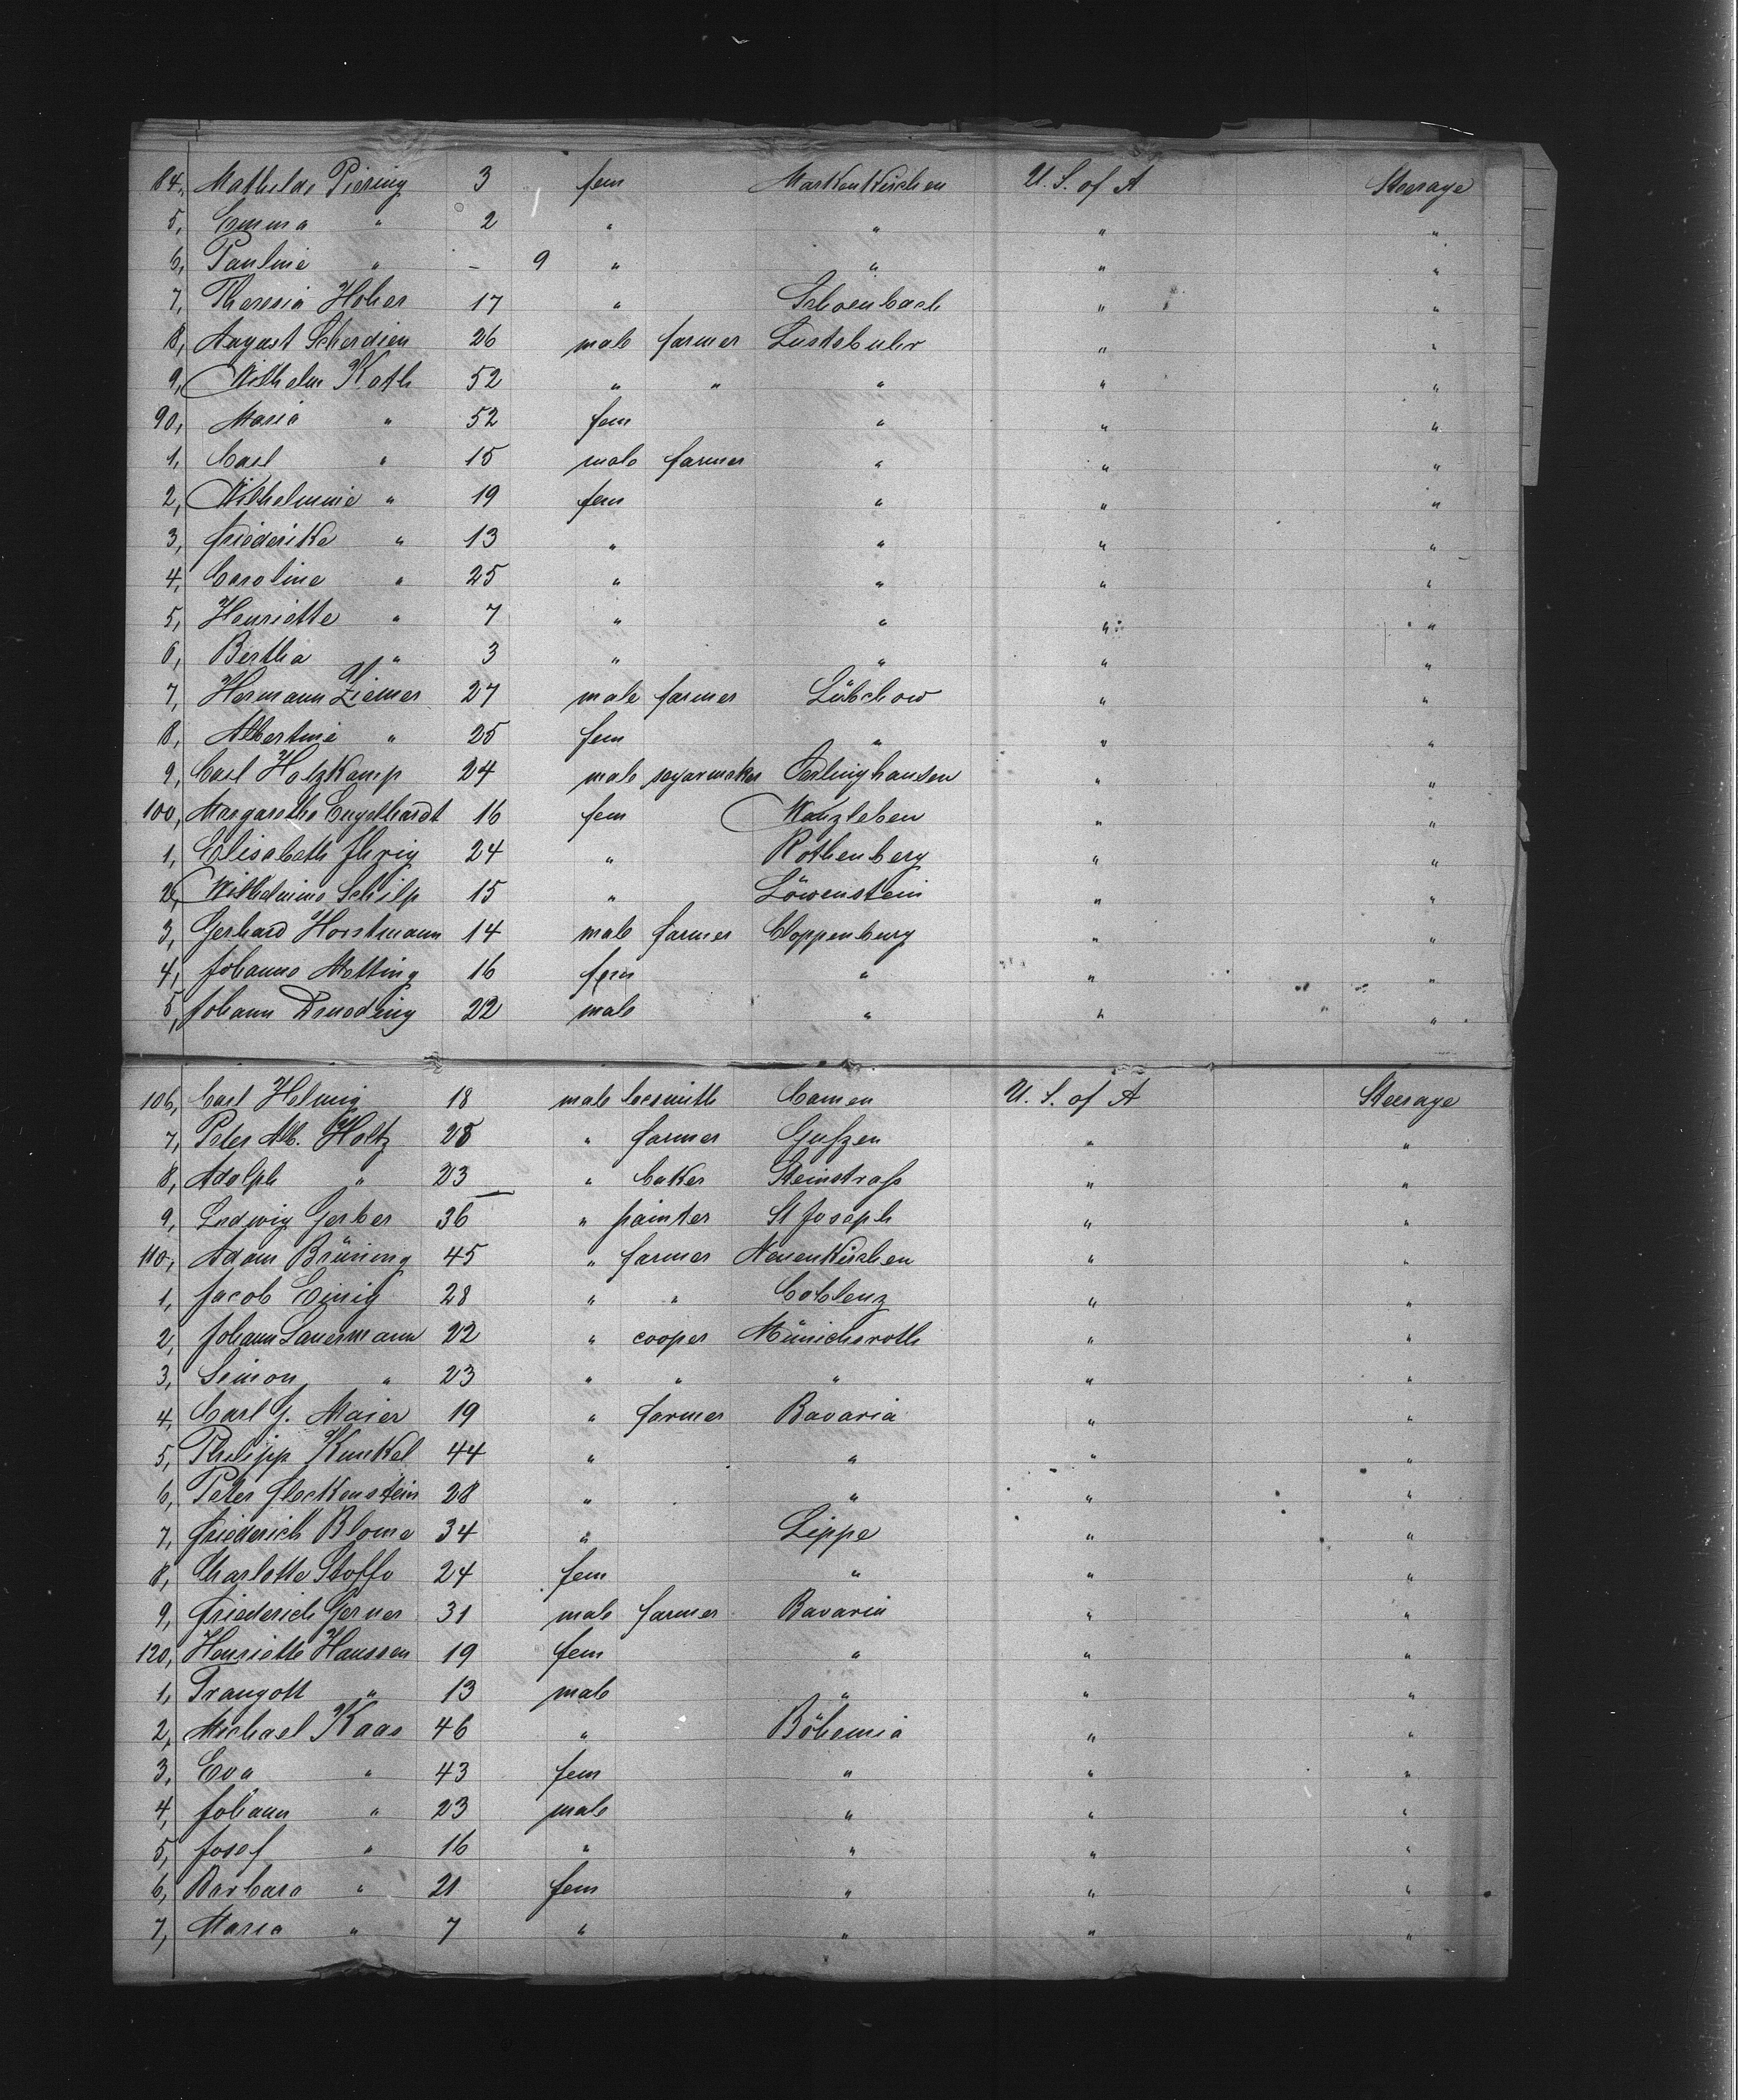 84, Mathilde Piering 3 fem Markenkirchen U. S. of A Steerage
5, Emma " 2 " " " "
6, Pauline " - 9 " " " "
7, Theresia Hoher 17 " Schoenbach " "
8, August Scherdien 26 male farmer Lustebuhr " "
9, Wilhelm Kath 52 " " " " "
90, Maria " 52 fem " " "
1, Carl " 15 male farmer " " "
2, Wilhelmine " 19 fem " " "
3, Friederike " 13 " " " "
4, Caroline " 25 " " " "
5, Henriette " 7 " " " "
6, Bertha " 3 " " " "
7, Hermann Ziemer 27 male farmer Lübchow " "
8, Albertine " 25 fem " " "
9, Carl Holzkamp 24 male segarmaker Oerlinghausen " "
100, Margarethe Engelhardt 16 fem Wanzleben " "
1, Elisabeth Ihrig 24 " Rothenberg " "
2, Wilhelmine Schilp 15 " Löwenstein " "
3, Gerhard Horstmann 14 male farmer Cloppenburg " "
4, Johanne Metting 16 fem " " "
5, Johann Drueding 22 male " " "
106, Carl Helmig 18 male locsmith Camen U. S. of A Steerage
7, Peter Alb. Holtz 28 " farmer Gufzen " "
8, Adolph " 23 " baker Steinstraß " "
9, Ludwig Gerber 36 " painter St Joseph " "
110, Adam Brüning 45 " farmer Neuenkirchen " "
1, Jacob Einig 28 " " Coblenz " "
2, Johann Sauermann 22 " cooper Münichsroth " "
3, Simon " 23 " " " " "
4, Carl G. Maier 19 " farmer Bavaria " "
5, Philipp Kunkel 44 " " " "
6, Peter Fleckenstein 28 " " " "
7, Friederich Blome 34 " Lippe " "
8, Charlotte Stoffo 24 fem " " "
9, Friederich Gerner 31 male farmer Bavaria " "
120, Henriette Hanssen 19 fem " " "
1, Traugott " 13 male " " "
2, Michael Kaas 46 " Böhemia " "
3, Eva " 43 fem " " "
4, Johann " 23 male " " "
5, Josef " 16 " " " "
6, Barbara " 21 fem " " "
7, Maria " 7 " " " "